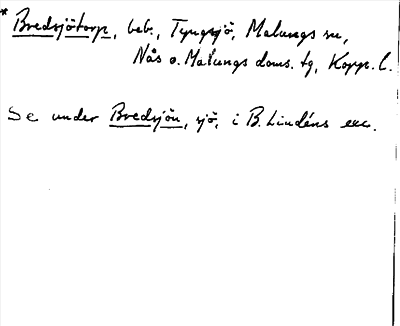 * Bredsjötorp, beb., Tyngsjö, Malungs sn,
Nås o. Malungs doms. tg, Kopp. l.
Se under Bredsjön, sjö, i B. Lindéns exc.